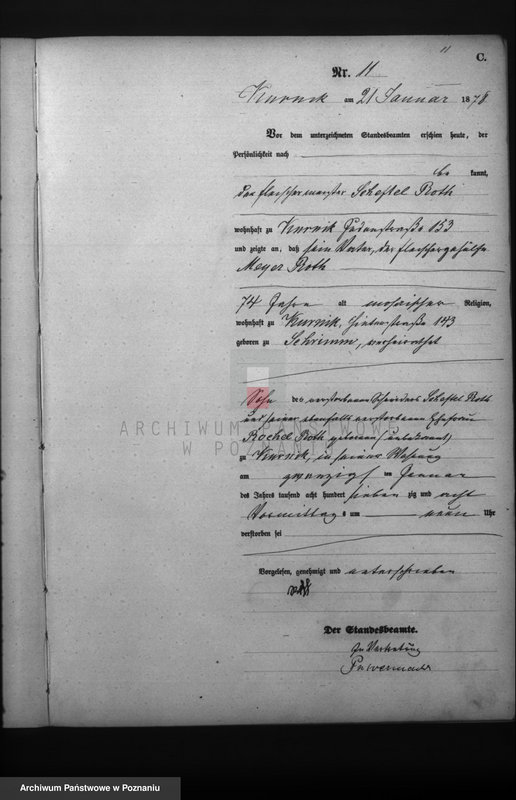 11
C.
Nr. 11
Kurnik am 21 Januar 1878
Vor dem unterzeichneten Standesbeamten erschien heute, der
Persönlichkeit nach
be kannt,
der Fleischermeister Scheftel Roth
wohnhaft zu Kurnik 153
und zeigte an, daß sein Vater, der Fleischergehülfe
Meyer Roth
74 Jahre alt mosaischer Religion,
wohnhaft zu Kurnik, Hinterstraße 143
geboren zu Schrimm, verheirathet
Sohn des verstorbenen Schneiders Scheftel Roth
und seiner ebenfalls verstorbenen Ehefrau
Rochel Roth geborenen (unbekannt)
zu Kurnik, in seiner Wohnung
am zwanzigsten Januar
des Jahres tausend acht hundert sieben zig und acht
Vormittags um neun Uhr
verstorben sei
Vorgelesen, genehmigt und unterschrieben
Der Standesbeamte.
In Vertretung
ARCHIWUM PAŃSTWOWE
W POZNANIU
Archiwum Państwowe w Poznaniu